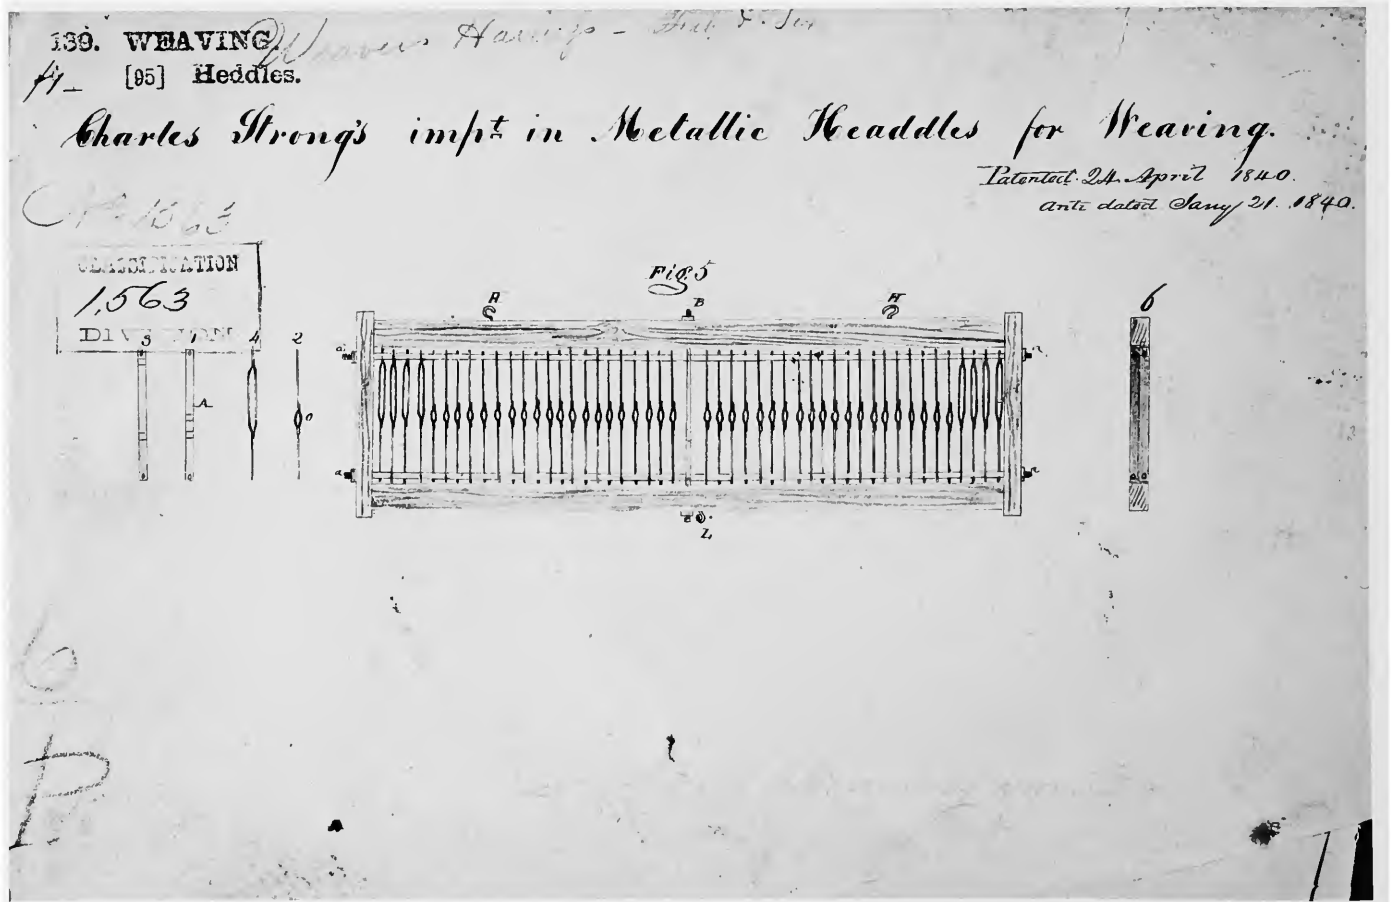 139. WEAVING.
Weavers
[95] Heddles.
Charles Strong's impt in Metallic Headdles for Weaving.
Patented 24 April 1840.
Anti dated Jany 21. 1840.
1563
CLASSIFICATION
1,563
DIVISION
3 1 4 2
A
o
Fig. 5
A B A
a a
a a
Z
6
6
P